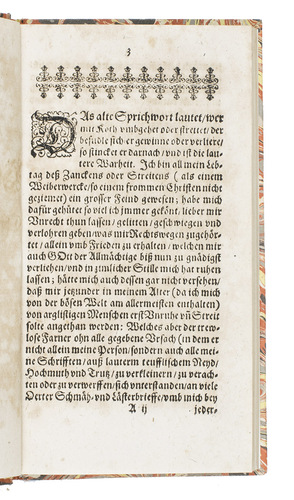 3
DAs alte Sprichwort lautet / wer
mit Koth vmbgehet oder streitet / der
besudle sich er gewinne oder verliere /
so stincket er darnach / vnd ist die lau-
tere Warheit. Ich bin all mein Leb-
tag deß Zanckens oder Streitens ( als einem
Weiberwercke / so einem frommen Christen nicht
geziemet) ein grosser Feind gewesen; habe mich
dafür gehütet so viel ich jmmer gekönt / lieber mir
Vnrecht thun lassen / gelitten / geschwiegen vnd
verlohren geben / was mir Rechtswegen zugehör-
tet / allein vmb Frieden zu erhalten / welchen mir
auch GOtt der Allmächtige biß nun zu gnädigst
verliehen / vnd in zimlicher Stille mich hat ruhen
lassen ; hätte mich auch dessen gar nicht versehen /
daß mir jezunder in meinem Alter (da ich mich
von der bösen Welt am allermeisten enthalten)
von arglistigen Menschen erst Vnruhe vñ Streit
solte angethan werden: Welches aber der trew-
lose Farner ohn alle gegebene Vrsach (in dem er
nicht allein meine Person / sondern auch alle mei-
ne Schrifften / auß lauterm teufflischem Neyd /
Hochmuth vnd Trutz / zu verkleinern / zu verach-
ten oder zu verwerffen / sich vnterstanden / an viele
Oerter Schmäh- vnd Lästerbrieffe / vmb mich bey
A ij jeder-